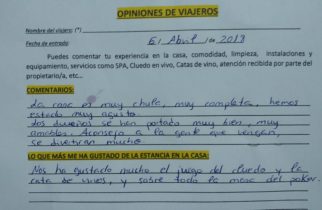 OPINIONES DE VIAJEROS
Nombre del viajero: (*)
Fecha de entrada: 6/ Abril /a 2013
Puedes comentar tu experiencia en la casa, comodidad, limpieza, instalaciones y
equipamiento, servicios como SPA, Cluedo en vivo, Catas de vino, atención recibida por parte del
propietario/a, etc...
COMENTARIOS:
La casa es muy chula, muy completa, hemos
estado muy agusto
Los dueños se han portado muy bien, muy
amables. Aconsejo a la gente que vengan,
se divertiran mucho
LO QUE MÁS ME HA GUSTADO DE LA ESTANCIA EN LA CASA:
Nos ha gustado mucho el juego del cluedo y la
cata de vinos, y sobre todo la mesa del poker.